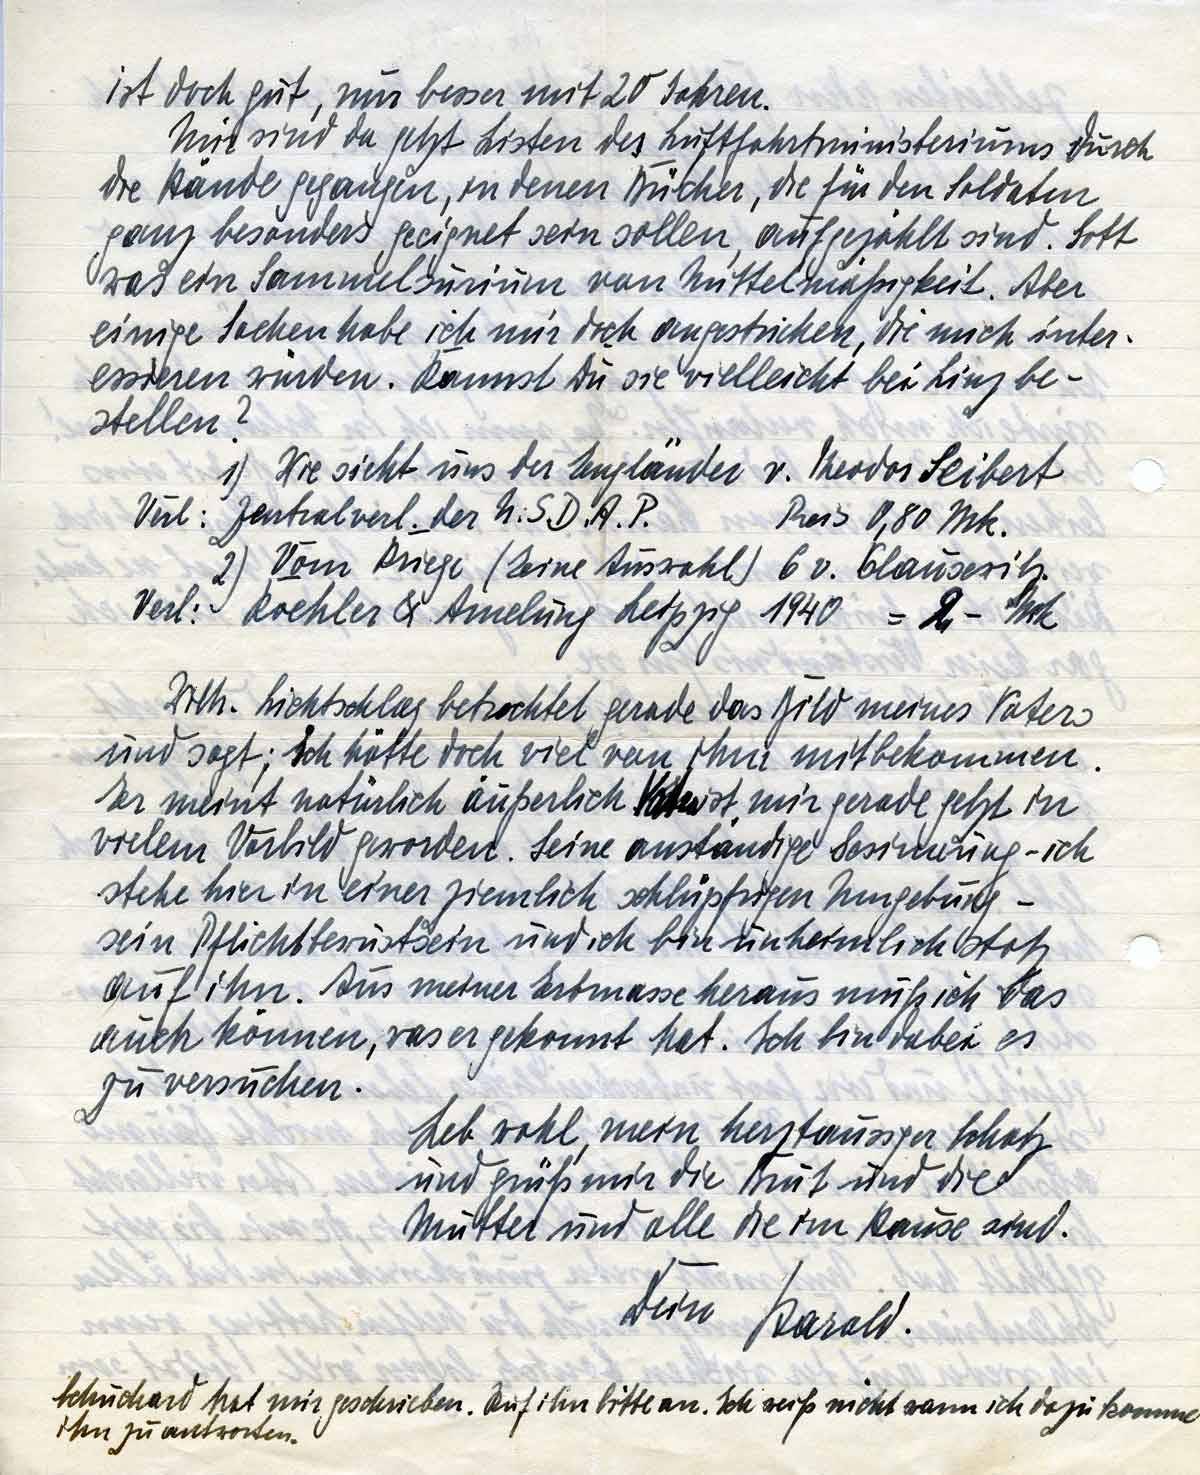 ist doch gut, nur besser mit 20 Jahren.
Mir sind da jetzt Listen des Luftfahrtministeriums durch
die Hände gegangen, in denen Bücher, die für den Soldaten
ganz besonders geeignet sein sollen, aufgezählt sind. Gott
was ein Sammelsurium von Mittelmäßigkeit. Aber
einige Sachen habe ich mir doch angestrichen, die mich inter-
essieren würden. Kannst Du sie vielleicht bei Linz be-
stellen?
1) Wie sieht uns der Engländer v. Theodor Seibert
Verl: Zentralverl. der N.S.D.A.P. Preis 0,80 Mk.
2) Vom Kriege (Eine Auswahl) C v. Clausewitz.
Verl: Koehler & Amelung Leipzig 1940 = 2,- Mk
Wilh. Lichtschlag betrachtet gerade das Bild meines Vaters
und sagt; Ich hätte doch viel von ihm mitbekommen.
Er meint natürlich äußerlich. Vater ist mir gerade jetzt in
vielem Vorbild geworden. Seine anständige Gesinnung - ich
stehe hier in einer ziemlich schlüpfrigen Umgebung -
sein Pflichtbewustsein und ich bin unheimlich stolz
auf ihn. Aus meiner Erbmasse heraus muß ich das
auch können, was er gekonnt hat. Ich bin dabei es
zu versuchen.
Leb wohl, mein herztausiger Schatz
und grüß mir die Brut und die
Mutter und alle die im Hause sind.
Dein Harald.
Schuchard hat mir geschrieben. Ruf ihn bitte an. Ich weiß nicht wann ich dazu komme
ihn zu antworten.